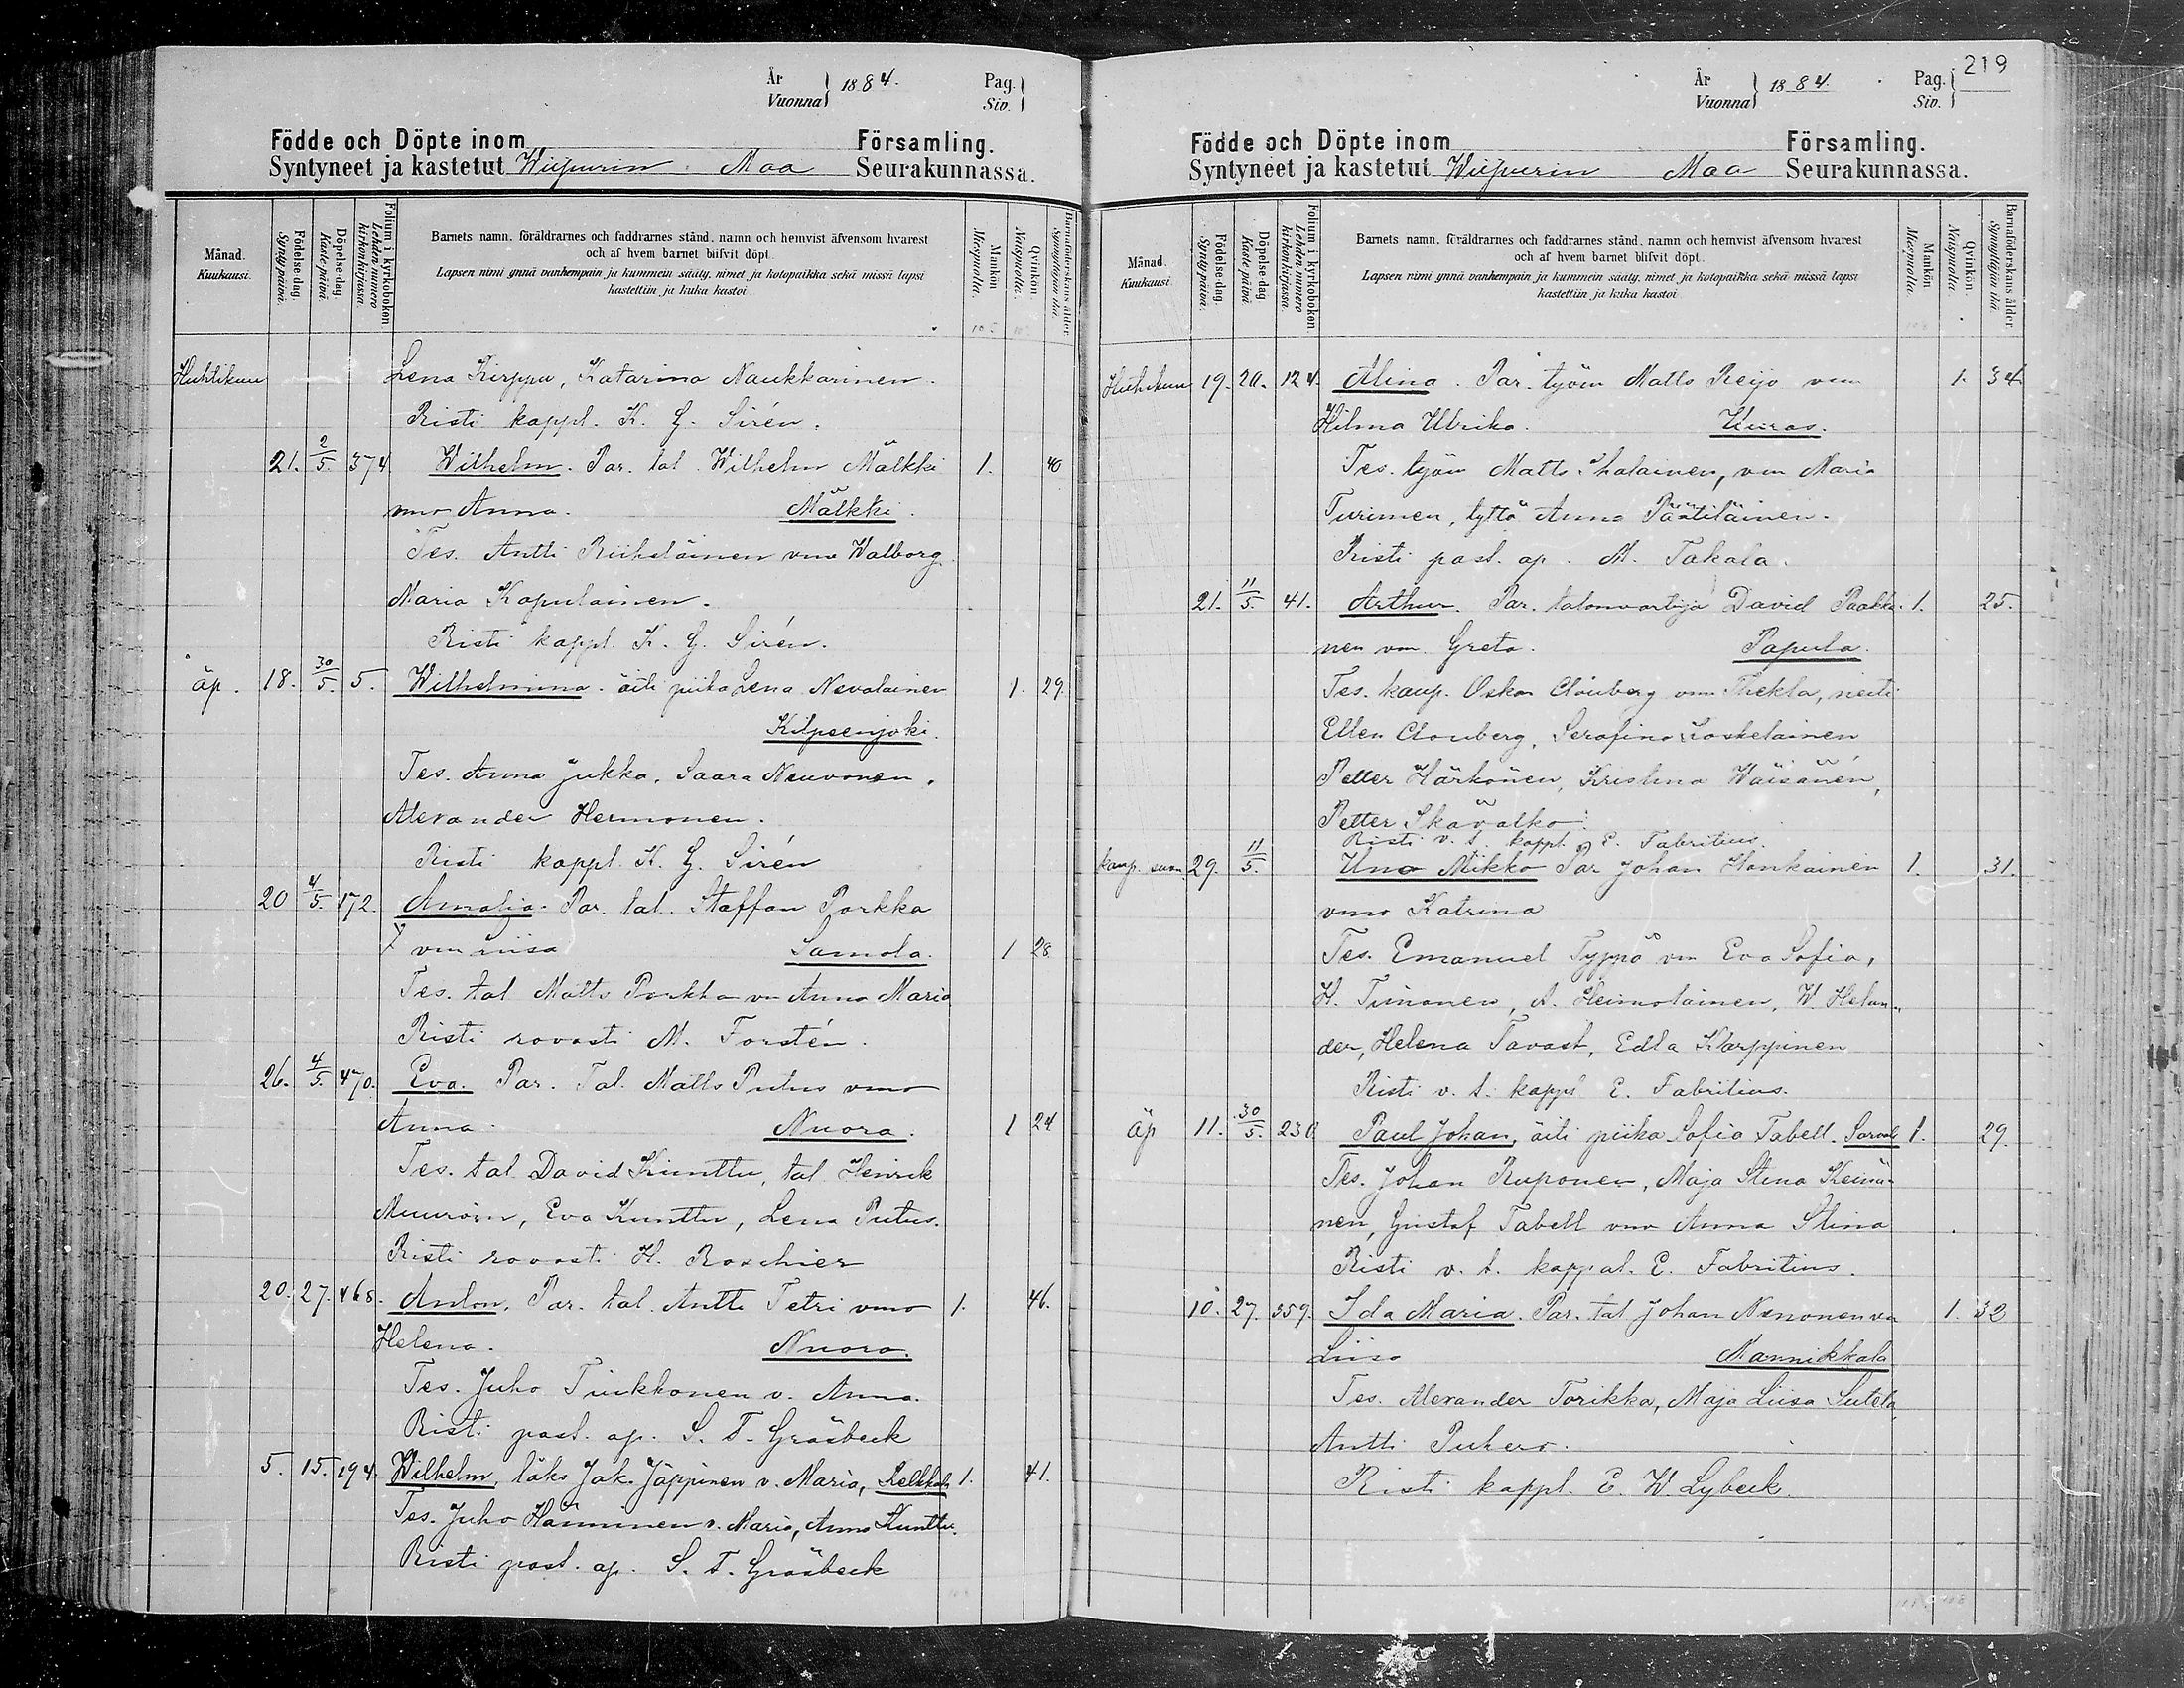 År Vuonna 1884. Pag. Siv.
Födde och Döpte inom Församling.
Syntyneet ja kastetut Wiipurin Maa Seurakunnassa.
Månad. Kuukausi.
Födelse-dag. Syntypäivä.
Döpelse-dag Kastepäivä.
Folium i kyrkoboken. Lehden numero kirkonkirjassa.
Barnets namn, föräldrarnes och faddrarnes stånd, namn och hemvist äfvensom hvarest
och af hvem barnet blifvit döpt.
Lapsen nimi ynnä vanhempain ja kummein sääty, nimet ja kotopaikka sekä missä lapsi
kastettiin ja kuka kastoi
Mankön Miespuolia.
Qvinkön Naispuolia.
Barnaföderskans ålder Synnyttäjän ikä.
Huhtikuu Lena Kirppu, Katarina Naukkarinen.
Risti kappl. K. G. Sirén.
21. 2/5. 374 Wilhelm. Par. tal. Wilhelm Mälkki 1. 40
vmo Anna. Mälkki.
Tes. Antti Riiheläinen vmo Walborg
Maria Kapulainen.
Risti kappl. K. G. Sirén.
äp. 18. 30/5. 5. Wilhelmina. äiti piika Lena Nevalainen 1. 29.
Kilpeenjoki.
Tes. Anna Jukka, Saara Neuvonen,
Alexander Hermonen.
Risti kappl. K. G. Sirén
20 4/5. 172. Amalia. Par. tal. Staffan Porkka
vm Liisa Samola. 1 28
Tes. tal Matts Porkka vm Anna Maria
Risti rovasti M. Forstén.
26. 4/5. 470. Eva. Par. Tal. Matts Putus vmo
Anna. Nuora. 1 24
Tes. tal David Kunttu, tal Henrik
Muurom, Eva Kunttu, Lena Putus.
Risti rovasti H. Roschier
20. 27. 468. Anton. Par. tal. Antti Tetri vmo 1. 46.
Helena. Nuora.
Tes. Juho Tuukkonen v. Anna.
Risti past. ap. S. T. Gräsbeck
5. 15. 194. Wilhelm, läks Jak. Jäppinen v. Maria, Kelkkala 1. 41.
Tes. Juho Hämminen v. Maria, Anna Kunttu.
Risti past. ap. S. T. Gräsbeck
219
År Vuonna 1884. Pag. Siv.
Födde och Döpte inom Församling.
Syntyneet ja kastetut Wiipurin Maa Seurakunnassa.
Månad. Kuukausi.
Födelse-dag. Syntypäivä.
Döpelse-dag Kastepäivä.
Folium i kyrkoboken. Lehden numero kirkonkirjassa.
Barnets namn, föräldrarnes och faddrarnes stånd, namn och hemvist äfvensom hvarest
och af hvem barnet blifvit döpt.
Lapsen nimi ynnä vanhempain ja kummein sääty, nimet ja kotopaikka sekä missä lapsi
kastettiin ja kuka kastoi
Mankön Miespuolia.
Qvinkön. Naispuolia.
Barnaföderskans ålder. Synnyttäjän ikä.
Huhtikuu 19. 20. 124. Alina. Par. työm Matts Reijo vm 1. 34.
Hilma Ulrika. Kiiras.
Tes. työm Matts Ihalainen, vm Maria
Turinen, tyttö Anna Päätiläinen.
Risti past. ap. M. Takala.
21. 11/5. 41. Arthur. Par. talonvartija David Paakki- 1. 25.
nen vm. Greta. Papula.
Tes. kaup. Oskar Clouberg vm Thekla, neiti
Ellen Clouberg, Serafina Koskelainen
Petter Härkönen, Kristina Wäisänen,
Petter Skävalko.
Risti v. t. kappl. E. Fabritius.
kaup. 29. 11/5. Uno Mikko Par Johan Honkainen 1. 31.
vmo Katrina
Tes. Emanuel Typpö vm Eva Sofia,
H. Timonen, A. Heimolainen, W. Helan-
der, Helena Tavast, Edla Karppinen
Risti v. t. kappl E. Fabritius.
äp 11. 30/5. 230. Paul Johan, äiti piika Sofia Tabell. 1. 29.
Tes. Johan Ruponen, Maja Stina Keinä-
nen, Gustaf Tabell vmo Anna Stina
Risti v. t. kappal. E. Fabritius.
10. 27. 359. Ida Maria. Par. tal Johan Nenonen vm 1. 32
Liisa Mannikkala
Tes. Alexander Torikka, Maja Liisa Sutela,
Antti Puhero.
Risti kappl. E. W. Lybeck.